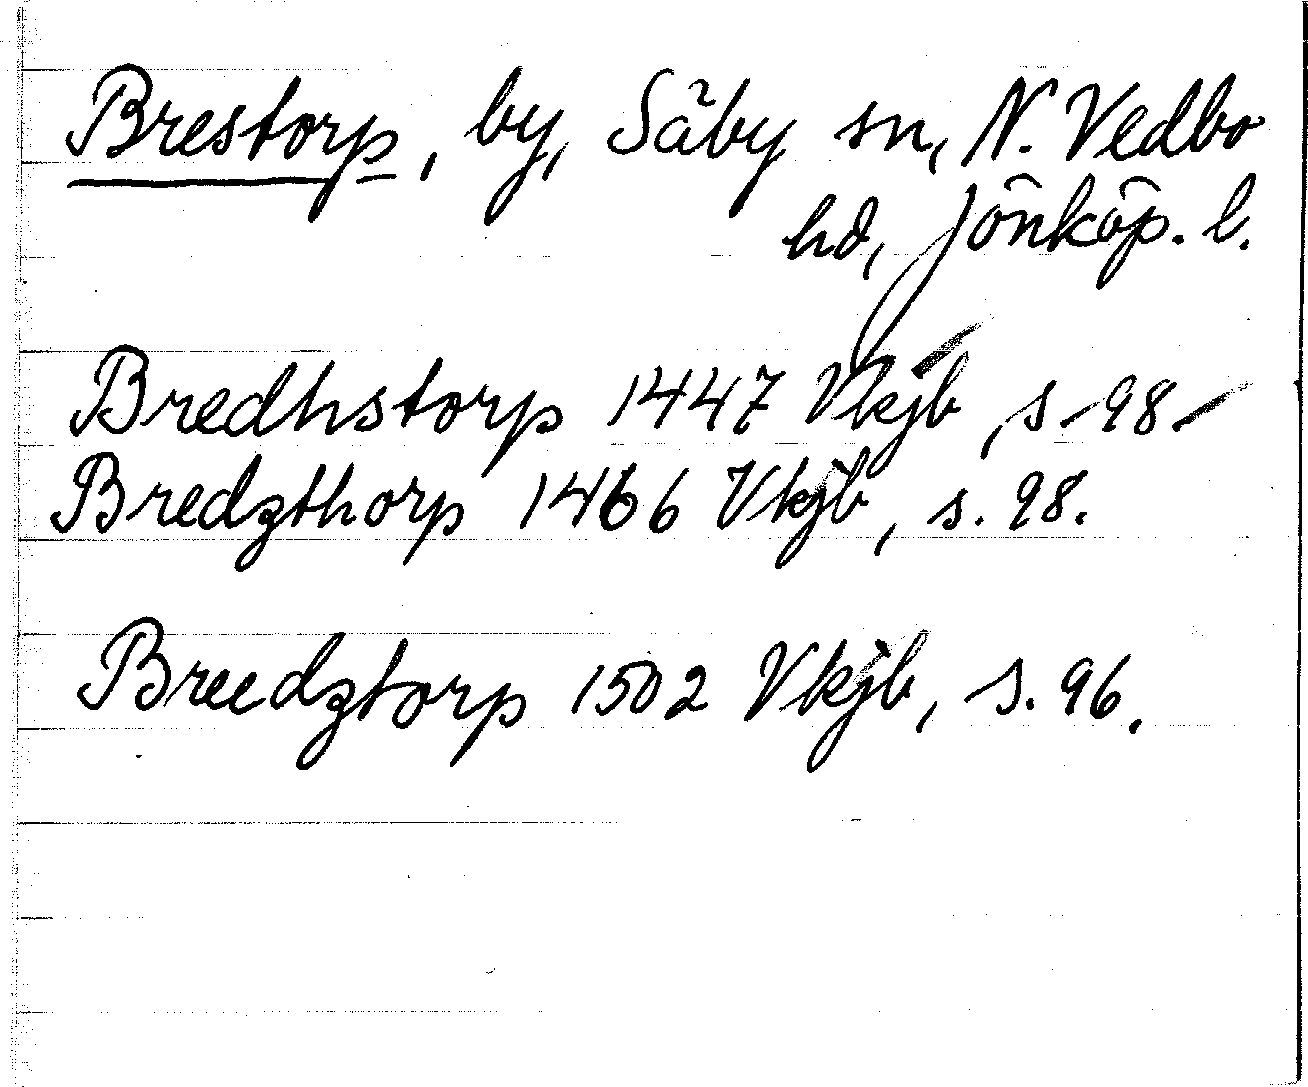 Brestorp, by, Säby sn, N. Vedbo
hd, Jönköp. l.
Bredhstorp 1447 Vkjb, s. 98.
Bredzthorp 1466 Vkjb, s. 98.
Breedztorp 1502 Vkjb, s. 96.